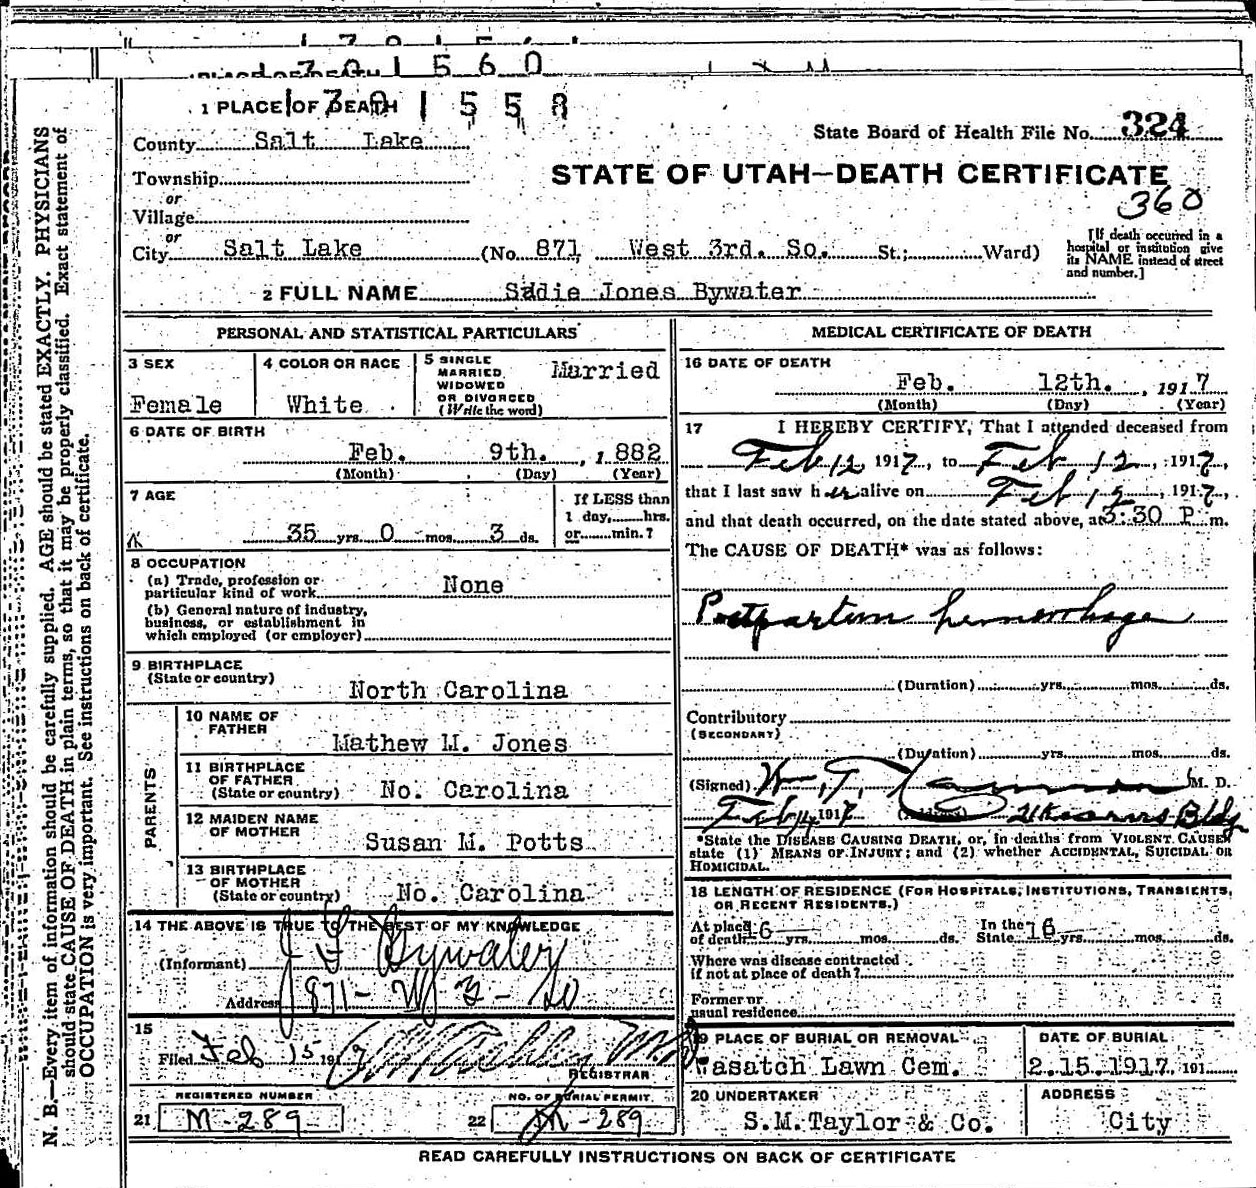 1 7 0 1 5 6 0
1 7 0 1 5 5 8
1 PLACE OF DEATH
County Salt Lake
State Board of Health File No. 324
Township
STATE OF UTAH—DEATH CERTIFICATE
or
Village
360
or
City Salt Lake (No. 871 West 3rd. So. St.; Ward)
[If death occurred in a
hospital or institution give
its NAME instead of street
and number.]
2 FULL NAME Sadie Jones Bywater
PERSONAL AND STATISTICAL PARTICULARS
3 SEX
Female
4 COLOR OR RACE
White
5 SINGLE
MARRIED,
WIDOWED
OR DIVORCED
(Write the word)
Married
6 DATE OF BIRTH
Feb. 9th. , 1882
(Month) (Day) (Year)
7 AGE
35 yrs. 0 mos. 3 ds.
If LESS than
1 day, hrs.
or min.?
8 OCCUPATION
(a) Trade, profession or
particular kind of work None
(b) General nature of industry,
business, or establishment in
which employed (or employer)
9 BIRTHPLACE
(State or country)
North Carolina
PARENTS
10 NAME OF
FATHER
Mathew M. Jones
11 BIRTHPLACE
OF FATHER
(State or country) No. Carolina
12 MAIDEN NAME
OF MOTHER
Susan M. Potts
13 BIRTHPLACE
OF MOTHER
(State or country) No. Carolina
14 THE ABOVE IS TRUE TO THE BEST OF MY KNOWLEDGE
(Informant) J Bywater
Address 871- W 3- So
15
Filed Feb 15 1917
REGISTRAR
REGISTERED NUMBER
21 M-289
NO. OF BURIAL PERMIT.
22 M-289
MEDICAL CERTIFICATE OF DEATH
16 DATE OF DEATH
Feb. 12th. , 1917
(Month) (Day) (Year)
17 I HEREBY CERTIFY, That I attended deceased from
Feb 12 1917, to Feb 12, 1917,
that I last saw her alive on Feb 12, 1917,
and that death occurred, on the date stated above, at 3:30 P m.
The CAUSE OF DEATH* was as follows:
Postpartum hemorrhage
(Duration) yrs. mos. ds.
Contributory
(SECONDARY)
(Duration) yrs. mos. ds.
(Signed) Wm. T. M. D.
Feb 14 1917 (Address) Bldg
*State the DISEASE CAUSING DEATH, or, in deaths from VIOLENT CAUSES
state (1) MEANS OF INJURY; and (2) whether ACCIDENTAL, SUICIDAL OR
HOMICIDAL.
18 LENGTH OF RESIDENCE (FOR HOSPITALS, INSTITUTIONS, TRANSIENTS,
OR RECENT RESIDENTS.)
At place
of death 16 yrs. mos. ds.
In the
State 16 yrs. mos. ds.
Where was disease contracted
if not at place of death?
Former or
usual residence
19 PLACE OF BURIAL OR REMOVAL
Wasatch Lawn Cem.
DATE OF BURIAL
2.15.1917. 191
20 UNDERTAKER
S.M.Taylor & Co.
ADDRESS
City
READ CAREFULLY INSTRUCTIONS ON BACK OF CERTIFICATE
N. B.—Every item of information should be carefully supplied. AGE should be stated EXACTLY. PHYSICIANS
should state CAUSE OF DEATH in plain terms, so that it may be properly classified. Exact statement of
OCCUPATION is very important. See instructions on back of certificate.